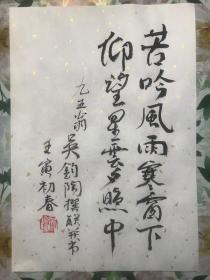 苦吟風雨寒窗下
仰望星雲夕照中
乙丑翁
吴鈞陶撰联并书
壬寅初春